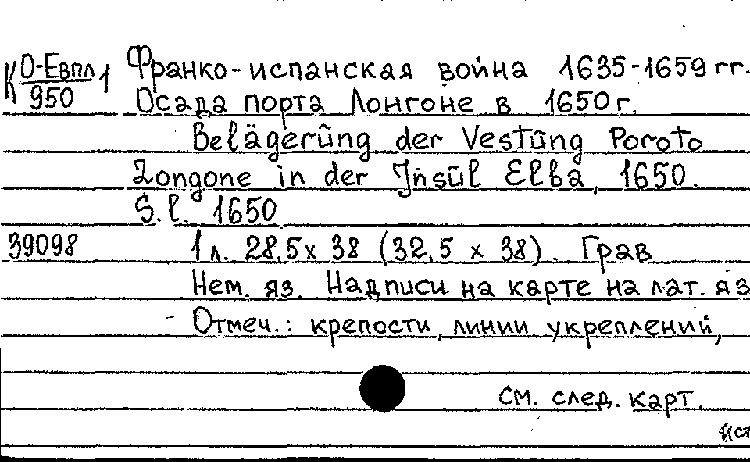 К О-Евпл 1 Франко-испанская война 1635-1659 гг.
950 Осада порта Лонгоне в 1650 г.
Belägerüng der Vestüng Poroto
Longone in der Jnsül Elba, 1650.
S.l. 1650
39098 1 л. 28,5 х 38 (32,5 х 38). Грав
Нем. яз. Надписи на карте на лат. яз
- Отмеч.: крепости, линии укреплений,
см. след. карт.